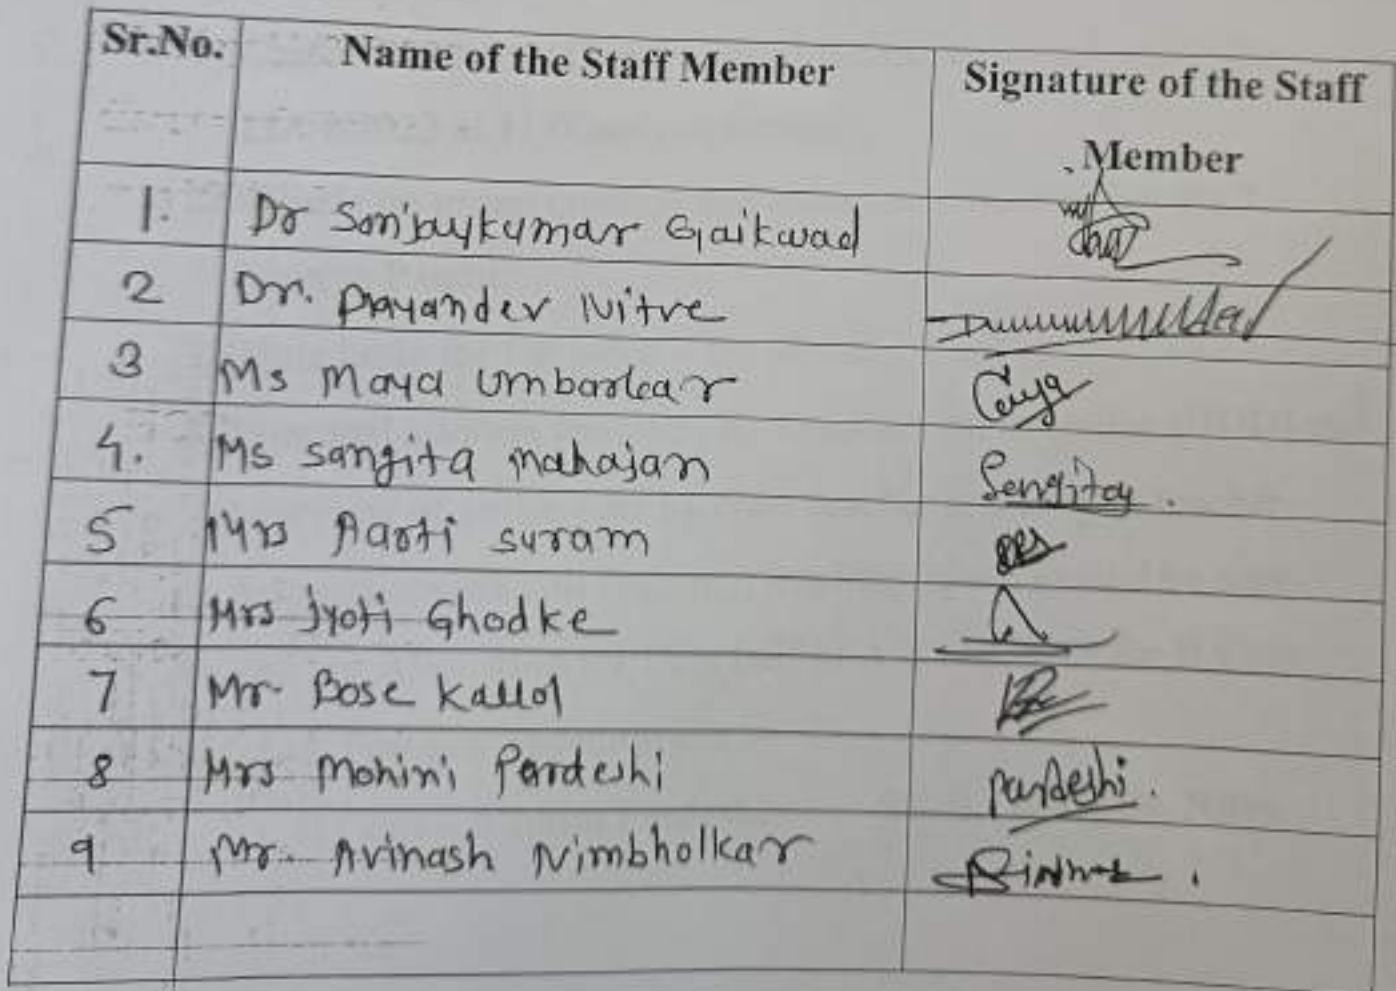 Sr.No. Name of the Staff Member Signature of the Staff
Member
1. Dr Sanjaykumar Gaikwad
2 Dr. Nitve
3 Ms Maya Umbarkar
4. Ms Sangita Mahajan Sangita
5 Mrs Aarti Suram
6 Mrs Jyoti Ghodke
7 Mr. Bose Kallol
8 Mrs Mohini Pardeshi Pardeshi.
9 Mr. Avinash Nimbholkar